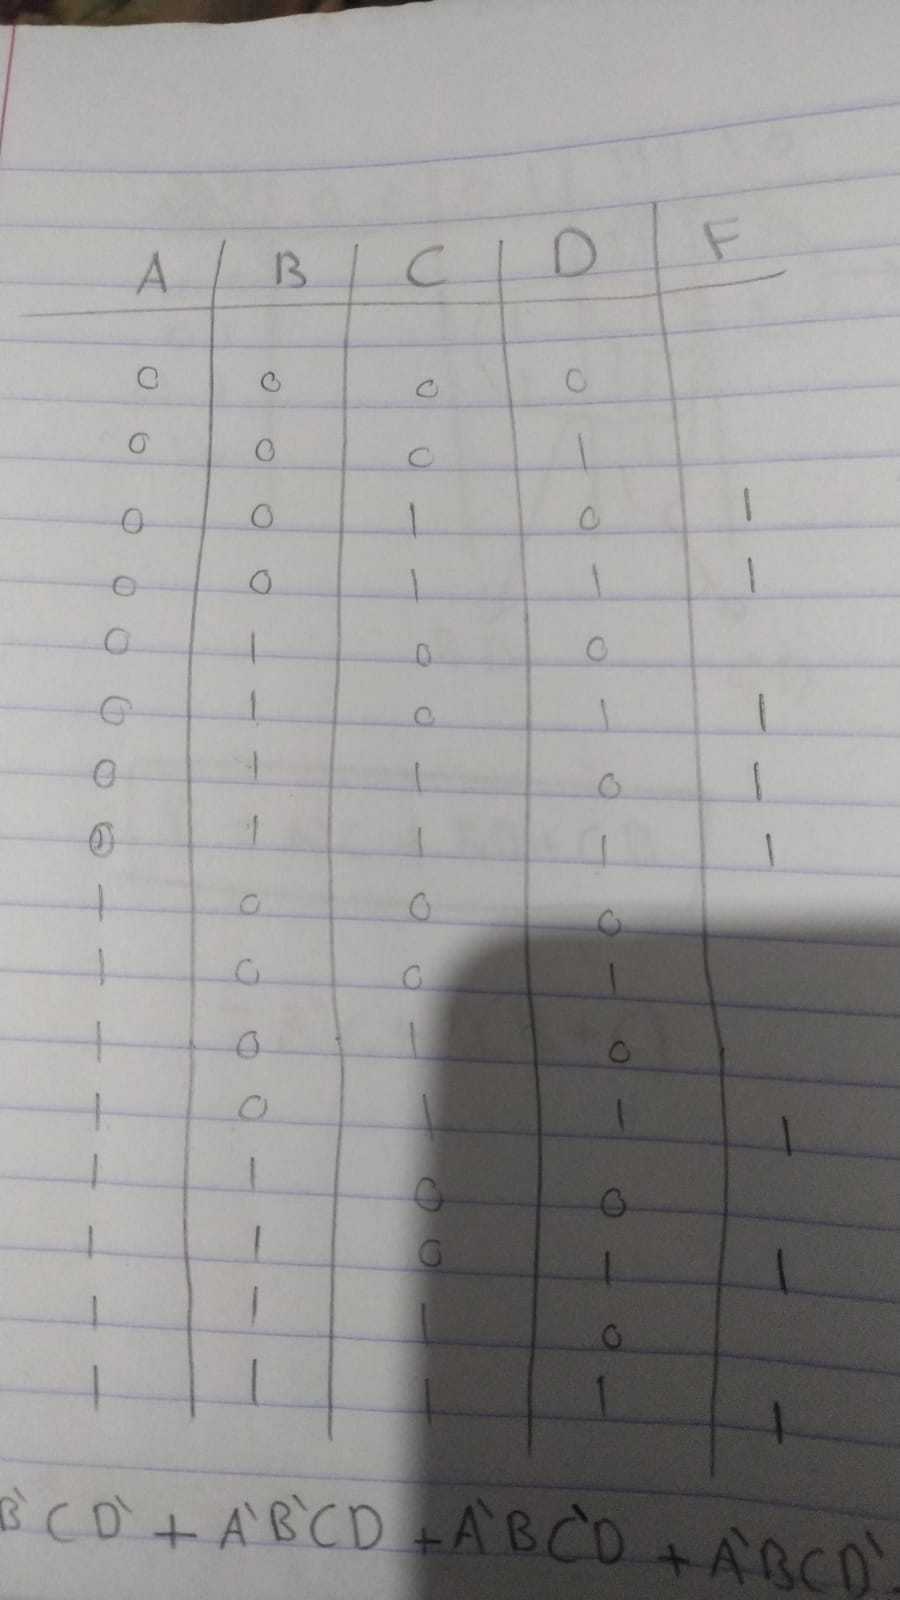 A B C D F
0 0 0 0
0 0 0 1
0 0 1 0 1
0 0 1 1 1
0 1 0 0
0 1 0 1 1
0 1 1 0 1
0 1 1 1 1
1 0 0 0
1 0 0 1
1 0 1 0
1 0 1 1 1
1 1 0 0
1 1 0 1 1
1 1 1 0
1 1 1 1 1
B'CD' + A'B'CD + A'BC'D + A'BCD'